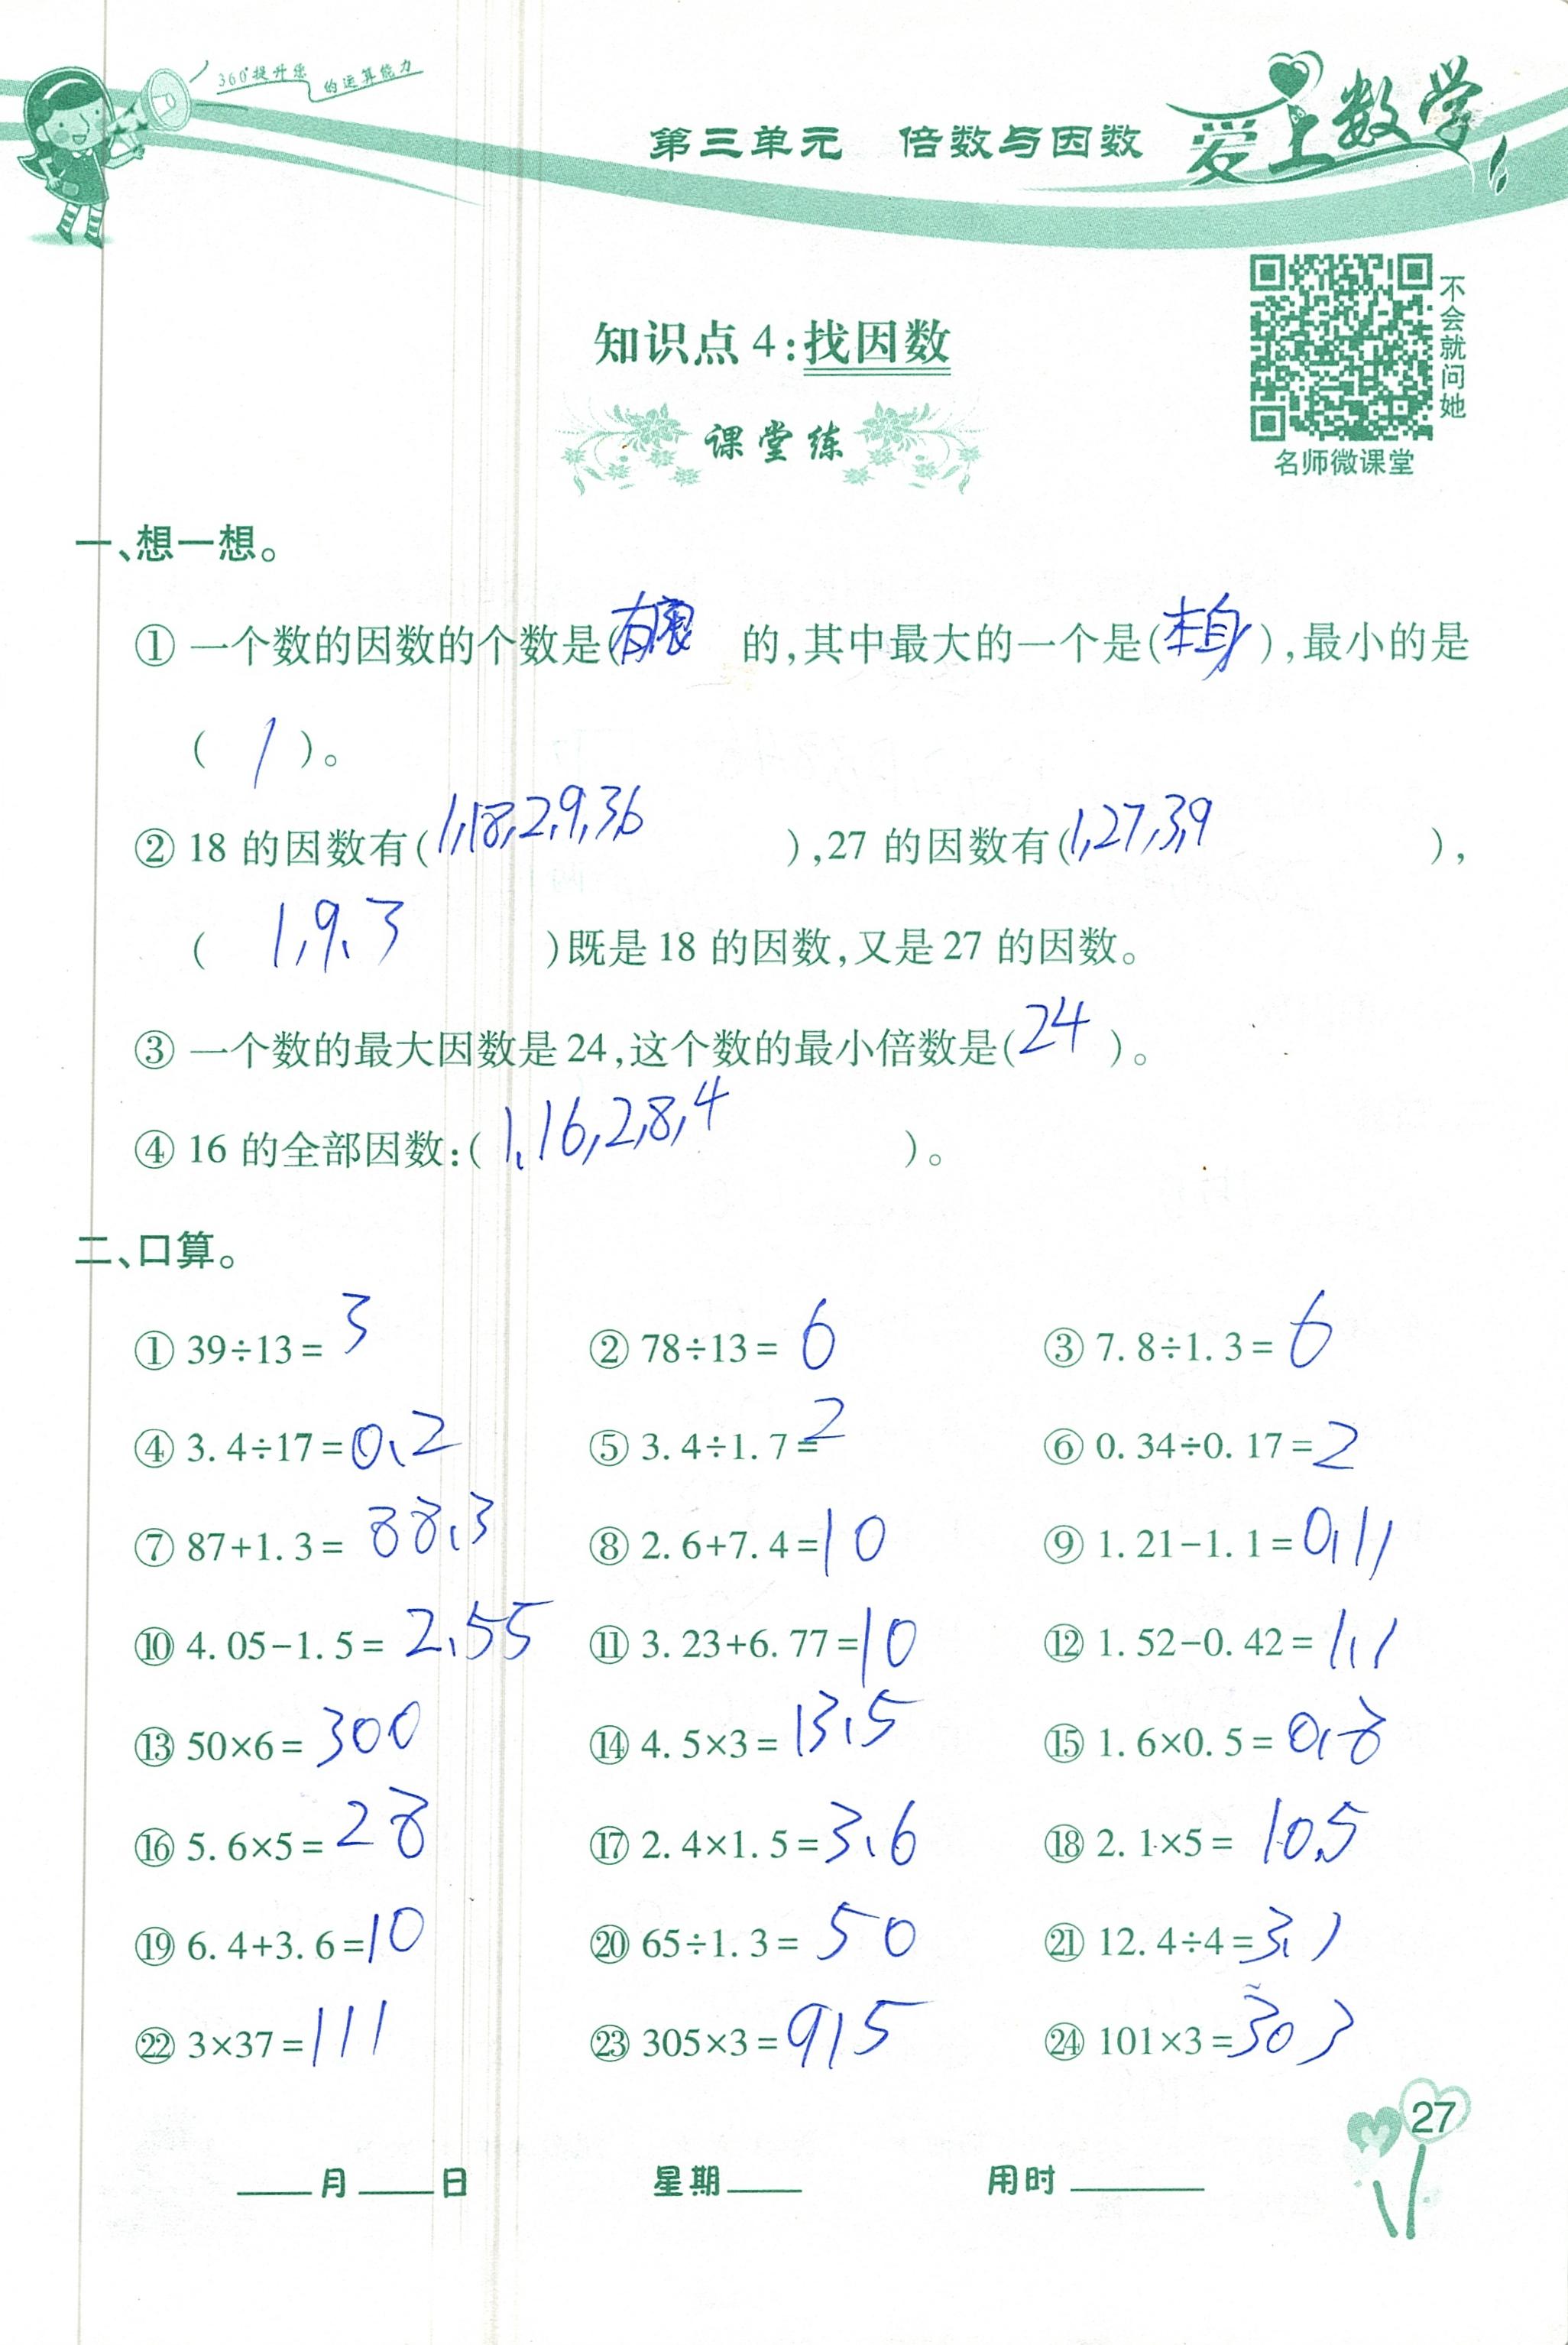 360°提升您的运算能力
第三单元 倍数与因数 爱上数学
不会就问她
名师微课堂
知识点4:找因数
课堂练
一、想一想。
① 一个数的因数的个数是(有限 的,其中最大的一个是(本身),最小的是
( 1 )。
② 18 的因数有(1,18,2,9,3,6 ),27 的因数有(1,27,3,9 ),
( 1,9、3 )既是 18 的因数,又是 27 的因数。
③ 一个数的最大因数是 24,这个数的最小倍数是(24)。
④ 16 的全部因数:( 1、16,2,8,4 )。
二、口算。
① 39÷13= 3 ② 78÷13= 6 ③ 7.8÷1.3= 6
④ 3.4÷17=0.2 ⑤ 3.4÷1.7=2 ⑥ 0.34÷0.17=2
⑦ 87+1.3= 88.3 ⑧ 2.6+7.4=10 ⑨ 1.21-1.1=0.11
⑩ 4.05-1.5= 2.55 ⑪ 3.23+6.77=10 ⑫ 1.52-0.42=1.1
⑬ 50×6=300 ⑭ 4.5×3=13.5 ⑮ 1.6×0.5=0.8
⑯ 5.6×5=28 ⑰ 2.4×1.5=3.6 ⑱ 2.1×5= 10.5
⑲ 6.4+3.6=10 ⑳ 65÷1.3= 50 ㉑ 12.4÷4=3.1
㉒ 3×37=111 ㉓ 305×3=915 ㉔ 101×3=303
27
____月____日 星期____ 用时______